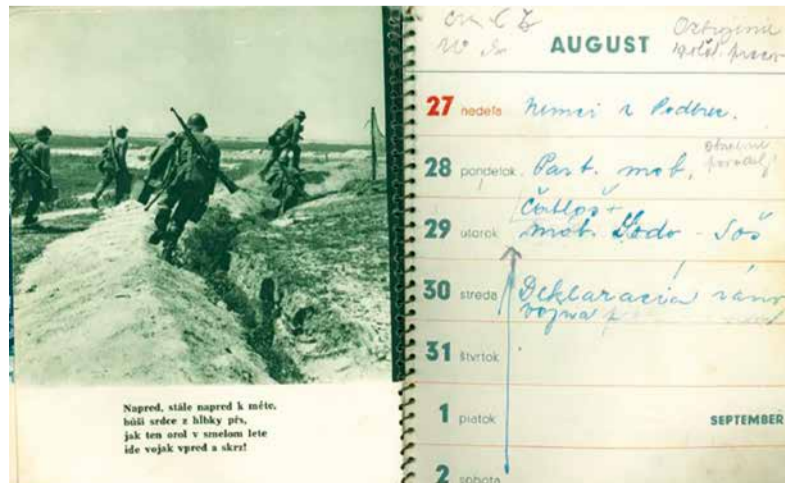 Napred, stále napred k méte,
búši srdce z hĺbky pŕs,
jak ten orol v smelom lete
ide vojak vpred a skrz!
AUGUST
27 nedeľa Nemci v Podbrez.
28 pondelok Part. mob.
29 utorok Čatloš +
mob. Dodo - Šoš
30 streda Deklarácia ráno
vojna
31 štvrtok
1 piatok SEPTEMBER
2 sobota